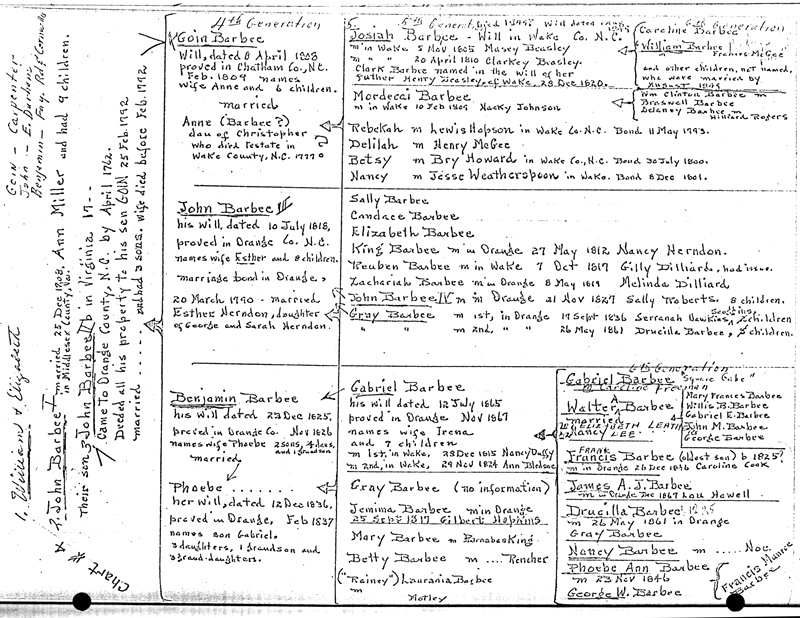 Goin - Carpenter
John - E. Durham
1. William & Elizabeth
2. John Barbee I married 25 Dec 1708, Ann Miller and had 9 children.
in Middlesex County, Va.
Their son 3 John Barbee II b in Virginia 17--
Came to Orange County, N.C. by April 1762.
Deeded all his property to his son GOIN 25 Feb. 1792
married ...... and had 3 sons. Wife died before Feb. 1792
Chart
4th Generation
Goin Barbee
Will, dated 8 April 1808
proved in Chatham Co., N.C.
Feb. 1809 names
wife Anne and 6 children.
married
Anne (Barbee?)
dau of Christopher
who died testate in
Wake County, N.C. 1777
John Barbee III
his Will, dated 10 July 1818,
proved in Orange Co. N.C.
names wife Esther and 8 children.
marriage bond in Orange,
20 March 1790 - married
Esther Herndon, daughter
of George and Sarah Herndon.
Benjamin Barbee
his will dated 23 Dec 1825,
proved in Orange Co. Nov 1826
names wife Phoebe 2 sons, 4 daus,
and 1 grandson
married
Phoebe .......
her will, dated 12 Dec 1836,
proved in Orange, Feb 1837
names son Gabriel,
3 daughters, 1 grandson and
3 grand-daughters.
5th Generation
Josiah Barbee - Will in Wake Co. N.C.
m in Wake 5 Nov 1805 Maxey Beasley
m " " 20 April 1810 Clarkey Beasley.
Clark Barbee named in the will of her
father Henry Beasley, of Wake, 28 Dec 1820.
Mordecai Barbee
m in Wake 10 Feb 1809 Nacky Johnson
Rebekah m Lewis Hopson in Wake Co. N.C. Bond 11 May 1793.
Delilah m Henry McGee
Betsy m Bry Howard in Wake Co., N.C. Bond 30 July 1800.
Nancy m Jesse Weatherspoon in Wake. Bond 8 Dec 1801.
Sally Barbee
Candace Barbee
Elizabeth Barbee
King Barbee m in Orange 27 May 1812 Nancy Herndon.
Reuben Barbee m in Wake 7 Oct 1817 Gilly Dilliard, had issue.
Zachariah Barbee m in Orange 8 May 1819 Melinda Dilliard
John Barbee IV m in Orange 21 Nov 1827 Sally Roberts. 8 children.
Gray Barbee m 1st, in Orange 17 Sept 1836 Serranah Hawkins, children
" " m 2nd, " " 26 May 1861 Drucilla Barbee, children
Gabriel Barbee
his will dated 12 July 1865
proved in Orange Nov 1867
names wife Irena
and 7 children
m 1st, in Wake, 23 Dec 1815 Nancy Duffy
m 2nd, in Wake, 29 Nov 1824 Ann Bledsoe
Gray Barbee (no information)
Jemima Barbee m in Orange
25 Sept 1817 Gilbert Hopkins
Mary Barbee m Barnabas King
Betty Barbee m .... Rencher
("Rainey") Laurania Barbee
m
Motley
6th Generation
Caroline Barbee
William Barbee
Francis McGee
and other children, not named,
who were married by
August 1845
Wm Clinton Barbee m
Braswell Barbee
Delaney Barbee m
Hilliard Rogers
6th Generation
Gabriel Barbee "Square Gabe"
m Caroline Freeman
Mary Frances Barbee
Willis B. Barbee
Gabriel E. Barbee
John M. Barbee
George Barbee
Walter A Barbee
married
ELIZABETH LEATH
Nancy LEE
FRANK
Francis Barbee (oldest son) b 1825?
m in Orange 26 Dec 1846 Caroline Cook
James A. J. Barbee
m in Orange Dec 1867 Lou Howell
Drucilla Barbee
m 26 May 1861 in Orange
Gray Barbee
Nancy Barbee m ..... Noe.
Phoebe Ann Barbee
m 23 Nov 1846
George W. Barbee
Francis Munroe
Barbee